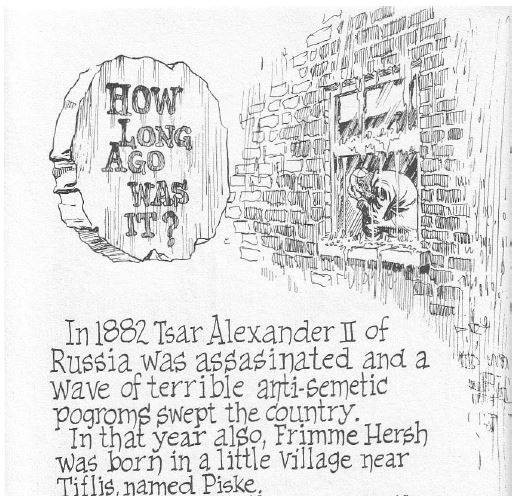 HOW
LONG
AGO
WAS
IT?
In 1882 Tsar Alexander II of
Russia was assasinated and a
wave of terrible anti-semetic
pogroms swept the country.
In that year also, Frimme Hersh
was born in a little village near
Tiflis, named Piske.